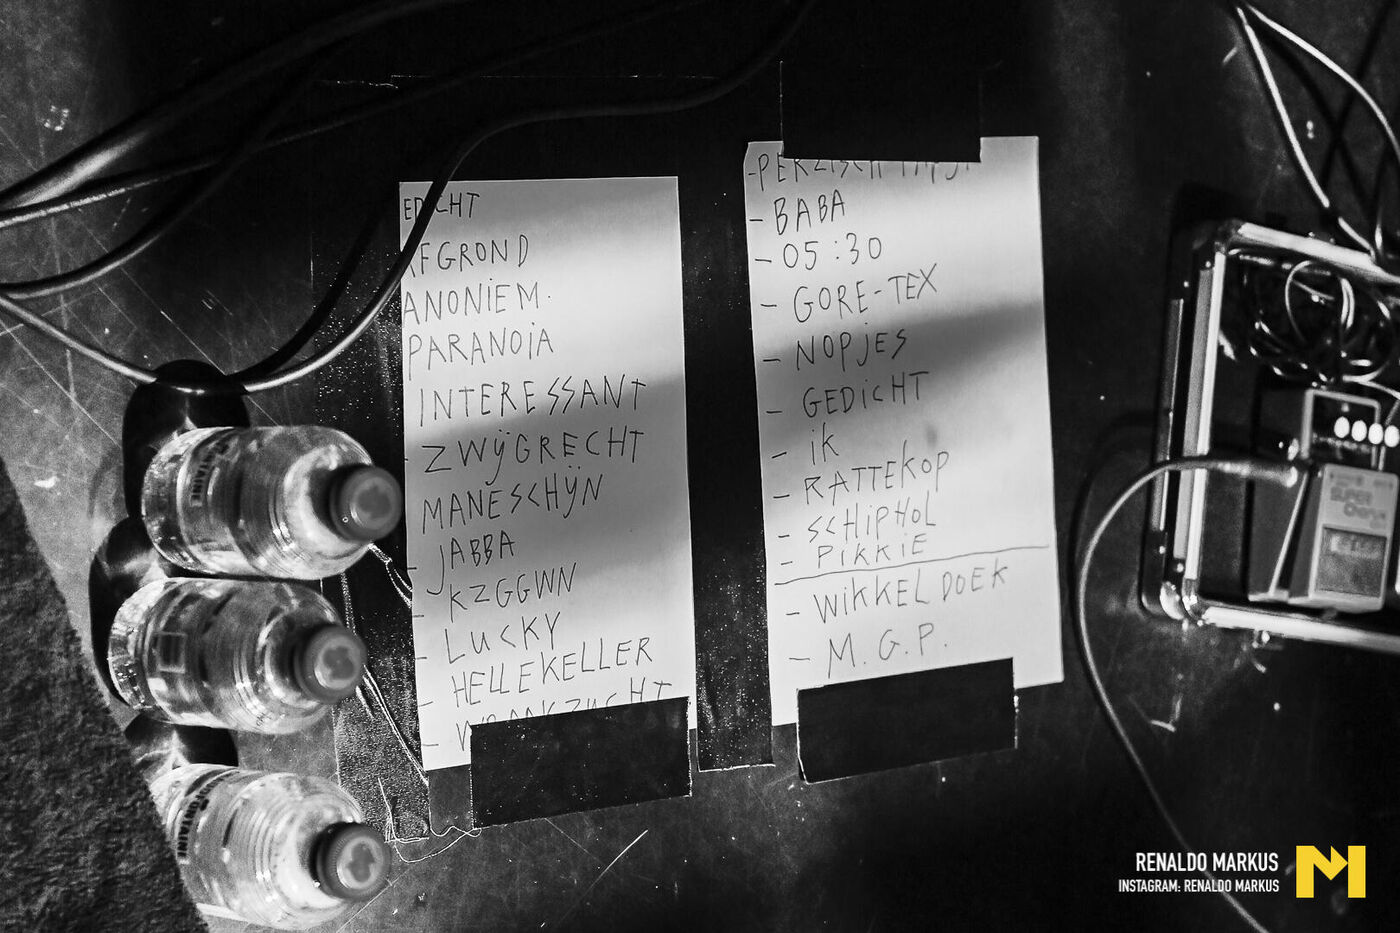 EDICHT
AFGROND
ANONIEM.
PARANOIA
INTERESSANT
- ZWIJGRECHT
MANESCHIJN
- JABBA
- KZGGWN
- LUCKY
- HELLEKELLER
-
-PERZISCH
- BABA
- 05:30
- GORE-TEX
- NOPJES
- GEDICHT
- IK
- RATTEKOP
- SCHIPHOL
- PIKKIE
- WIKKELDOEK
- M.G.P.
SUPER
RENALDO MARKUS
INSTAGRAM: RENALDO MARKUS